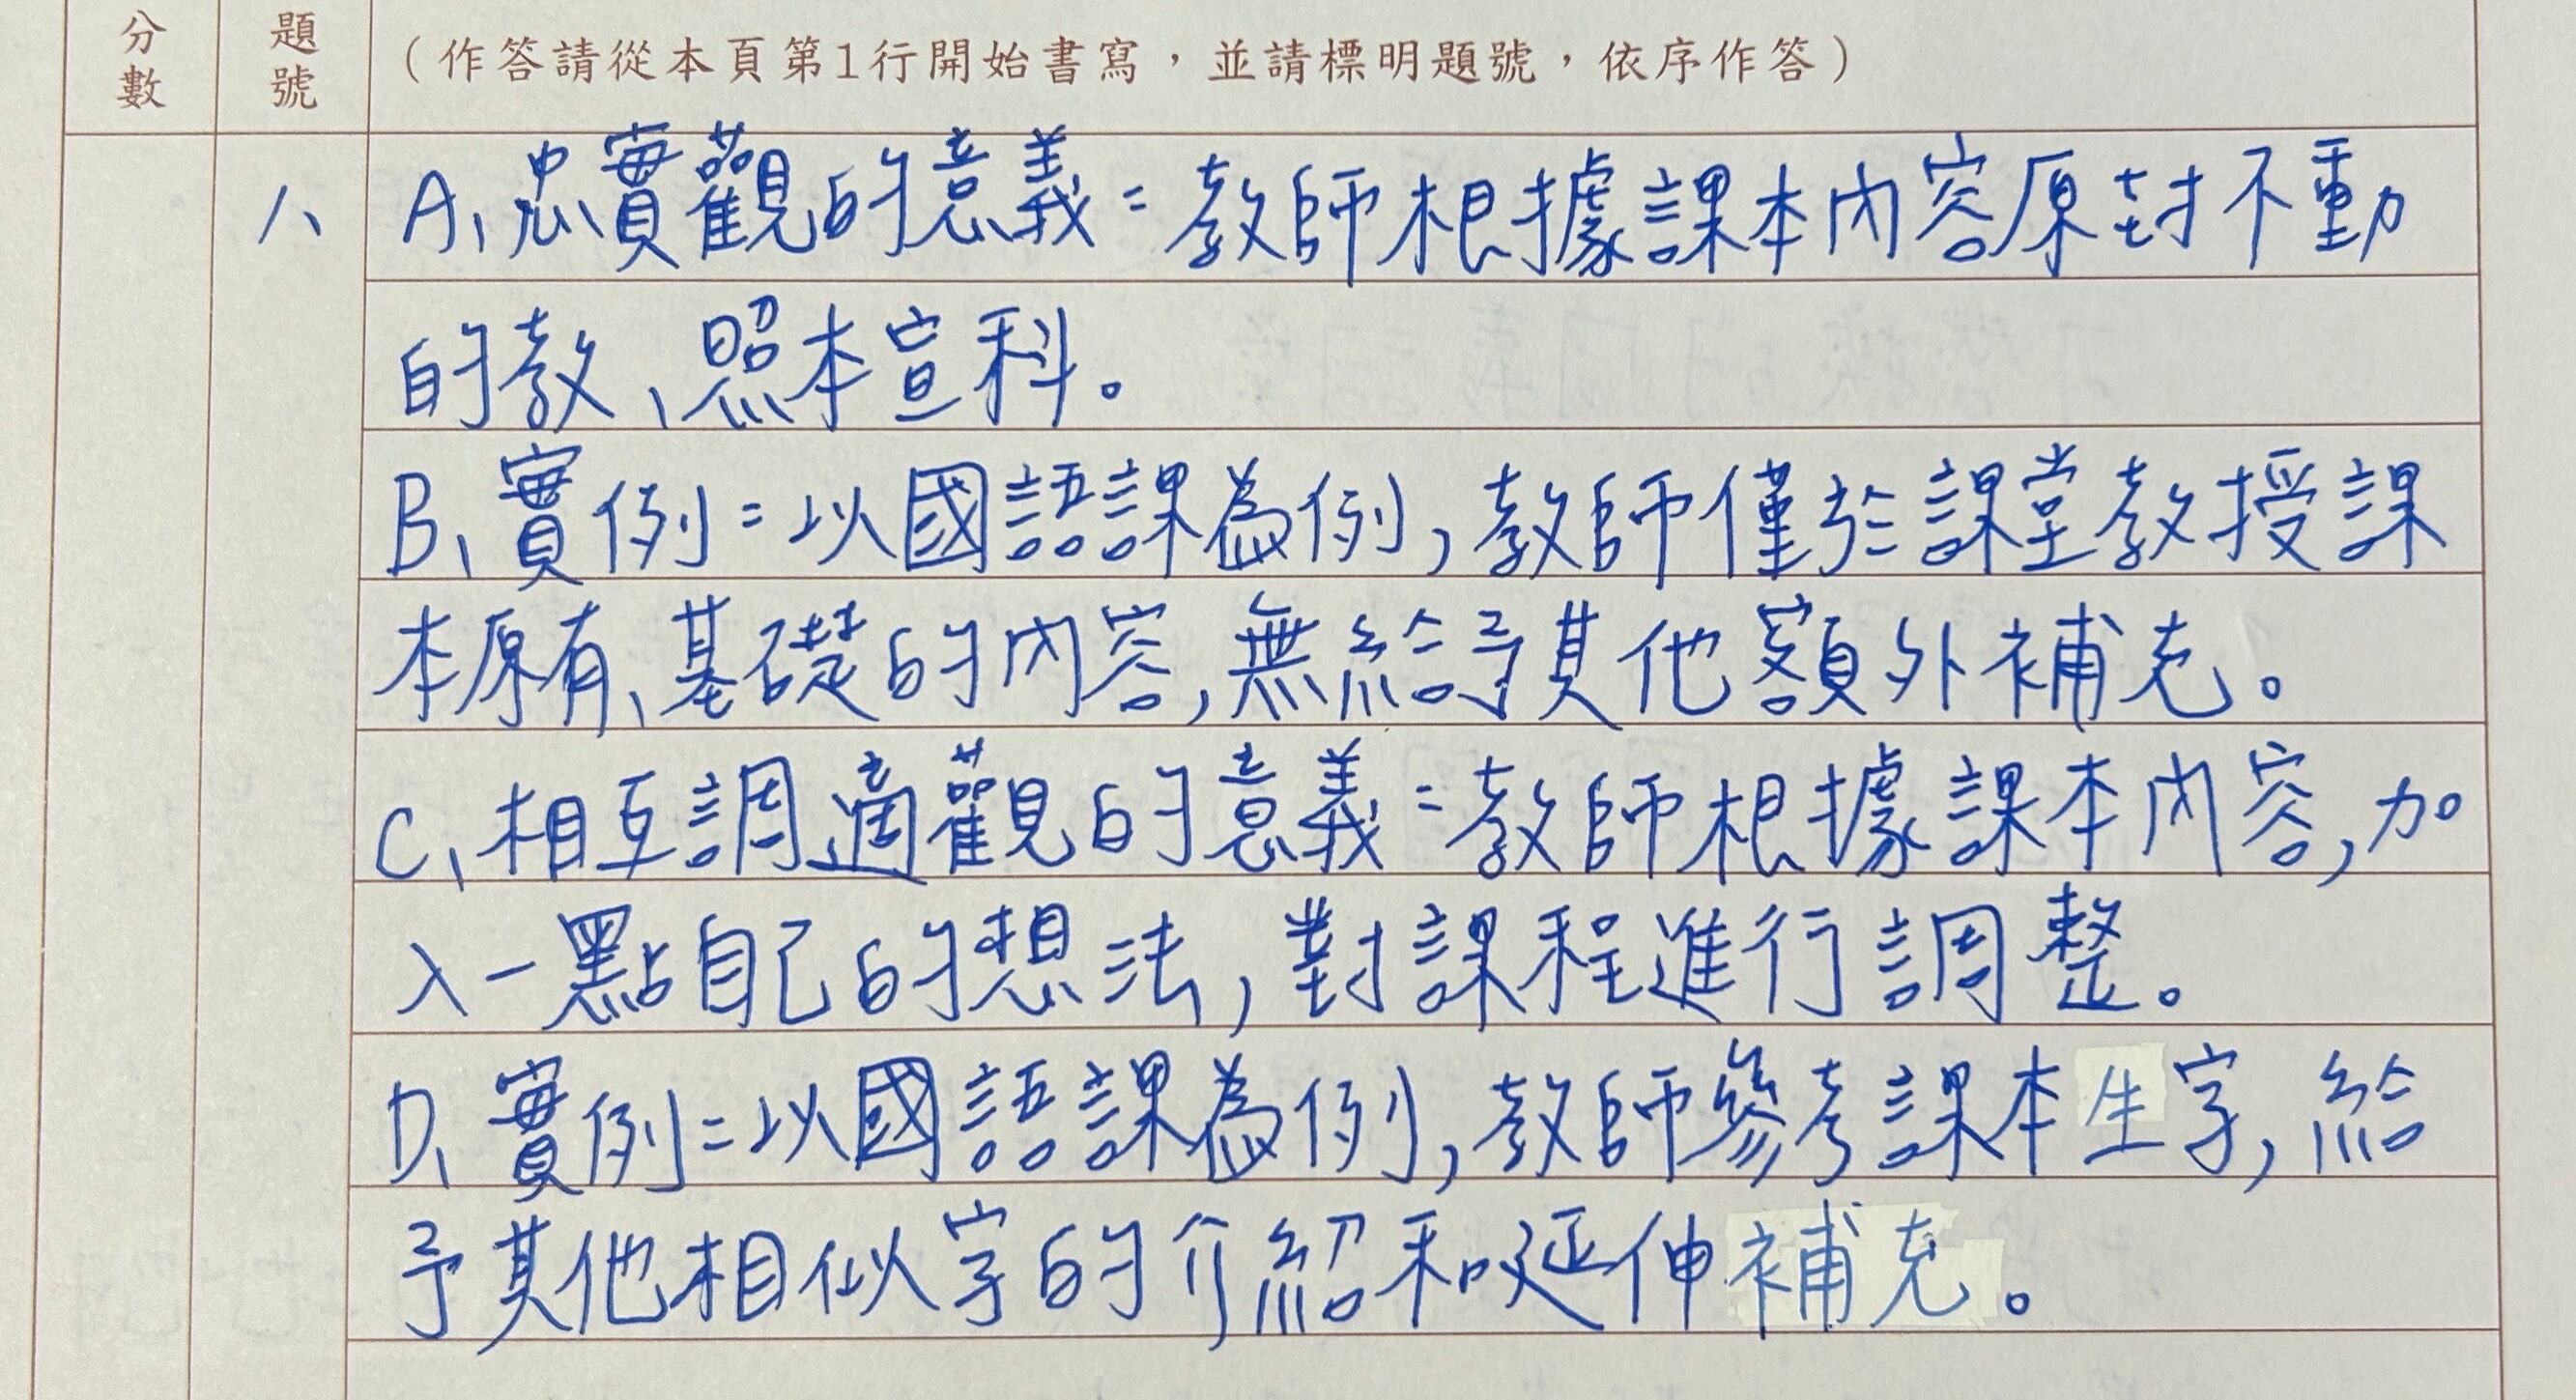 分數
題號
（作答請從本頁第1行開始書寫，並請標明題號，依序作答）
八、A、忠實觀的意義：教師根據課本內容原封不動
的教、照本宣科。
B、實例：以國語課為例，教師僅於課堂教授課
本原有、基礎的內容，無給予其他額外補充。
C、相互調適觀的意義：教師根據課本內容，加
入一點自己的想法，對課程進行調整。
D、實例：以國語課為例，教師參考課本生字，給
予其他相似字的介紹和延伸補充。